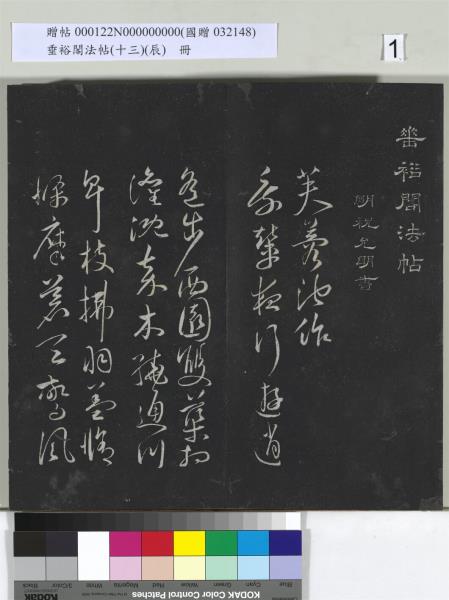 贈帖 000122N000000000(國贈 032148)
垂裕閣法帖(十三)(辰) 冊
1
垂裕閣法帖
明祝允明書
芙蓉池作
乘輦夜行遊逍
遙步西園雙渠相
溉灌嘉木繞通川
卑枝拂羽蓋脩
條摩蒼天驚風
Blue
Cyan
Green
Yellow
Red
Magenta
White
3/Color
Black
KODAK Color Control Patches